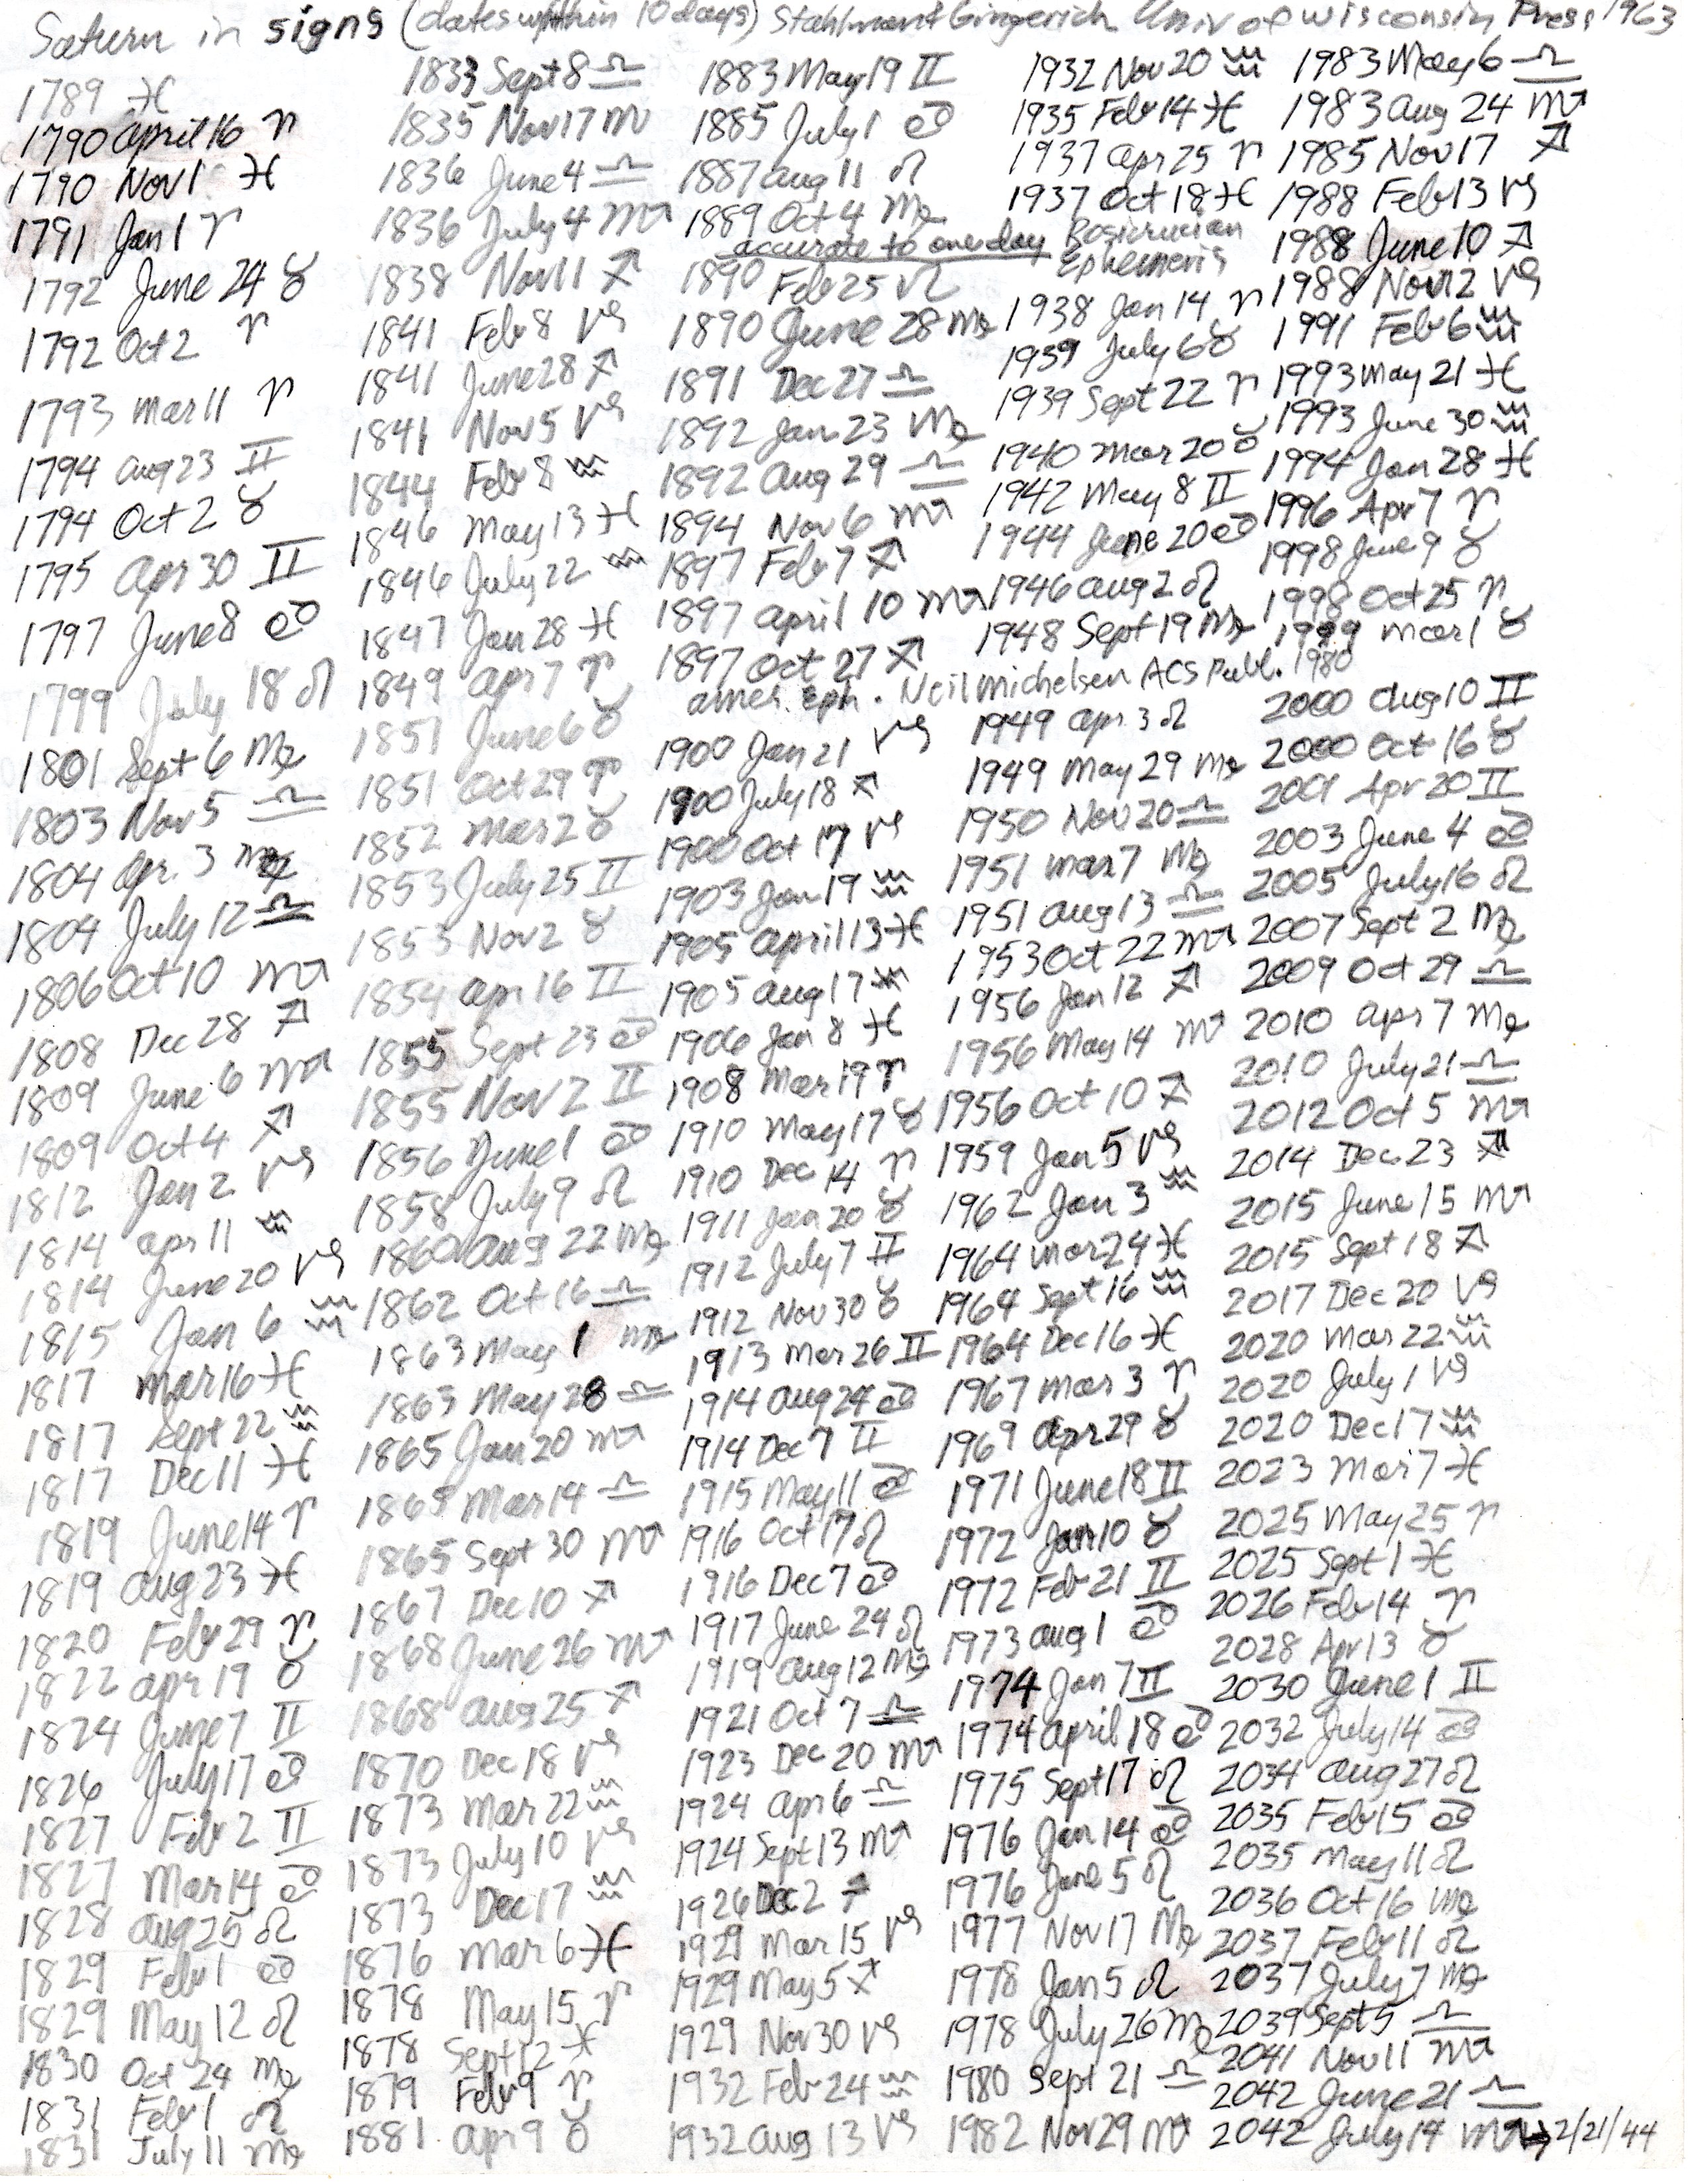 Saturn in signs (dates within 10 days) Stahlman + Gingerich Univ of Wisconsin Press 1963
1789 ♓
1790 April 16 ♈
1790 Nov 1 ♓
1791 Jan 1 ♈
1792 June 24 ♉
1792 Oct 2 ♈
1793 Mar 11 ♈
1794 Aug 23 ♊
1794 Oct 2 ♉
1795 Apr 30 ♊
1797 June 8 ♋
1799 July 18 ♌
1801 Sept 6 ♍
1803 Nov 5 ♎
1804 Apr. 3 ♍
1804 July 12 ♎
1806 Oct 10 ♏
1808 Dec 28 ♐
1809 June 6 ♏
1809 Oct 4 ♐
1812 Jan 2 ♑
1814 Apr 11 ♒
1814 June 20 ♑
1815 Jan 6 ♒
1817 Mar 16 ♓
1817 Sept 22 ♒
1817 Dec 11 ♓
1819 June 14 ♈
1819 Aug 23 ♓
1820 Feb 29 ♈
1822 Apr 19 ♉
1824 June 7 ♊
1826 July 17 ♋
1827 Feb 2 ♊
1827 Mar 14 ♋
1828 Aug 25 ♌
1829 Feb 1 ♋
1829 May 12 ♌
1830 Oct 24 ♍
1831 Feb 1 ♌
1831 July 11 ♍
1833 Sept 8 ♎
1835 Nov 17 ♏
1836 June 4 ♎
1836 July 4 ♏
1838 Nov 11 ♐
1841 Feb 8 ♑
1841 June 28 ♐
1841 Nov 5 ♑
1844 Feb 8 ♒
1846 May 13 ♓
1846 July 22 ♒
1847 Jan 28 ♓
1849 Apr 7 ♈
1851 June 6 ♉
1851 Oct 29 ♈
1852 Mar 2 ♉
1853 July 25 ♊
1853 Nov 2 ♉
1854 Apr 16 ♊
1855 Sept 23 ♋
1855 Nov 2 ♊
1856 June 1 ♋
1858 July 9 ♌
1860 Aug 22 ♍
1862 Oct 16 ♎
1863 May 1 ♍
1863 May 28 ♎
1865 Jan 20 ♏
1865 Mar 14 ♎
1865 Sept 30 ♏
1867 Dec 10 ♐
1868 June 26 ♏
1868 Aug 25 ♐
1870 Dec 18 ♑
1873 Mar 22 ♒
1873 July 10 ♑
1873 Dec 17 ♒
1876 Mar 6 ♓
1878 May 15 ♈
1878 Sept 12 ♓
1879 Feb 9 ♈
1881 Apr 9 ♉
1883 May 19 ♊
1885 July 1 ♋
1887 Aug 11 ♌
1889 Oct 4 ♍
accurate to one day Rosicrucian Ephemeris
1890 Feb 25 ♌
1890 June 28 ♍
1891 Dec 27 ♎
1892 Jan 23 ♍
1892 Aug 29 ♎
1894 Nov 6 ♏
1897 Feb 7 ♐
1897 April 10 ♏
1897 Oct 27 ♐
Amer. Eph. Neil Michelsen ACS Publ. 1980
1900 Jan 21 ♑
1900 July 18 ♐
1900 Oct 17 ♑
1903 Jan 19 ♒
1905 April 13 ♓
1905 Aug 17 ♒
1906 Jan 8 ♓
1908 Mar 19 ♈
1910 May 17 ♉
1910 Dec 14 ♈
1911 Jan 20 ♉
1912 July 7 ♊
1912 Nov 30 ♉
1913 Mar 26 ♊
1914 Aug 24 ♋
1914 Dec 7 ♊
1915 May 11 ♋
1916 Oct 17 ♌
1916 Dec 7 ♋
1917 June 24 ♌
1919 Aug 12 ♍
1921 Oct 7 ♎
1923 Dec 20 ♏
1924 Apr 6 ♎
1924 Sept 13 ♏
1926 Dec 2 ♐
1929 Mar 15 ♑
1929 May 5 ♐
1929 Nov 30 ♑
1932 Feb 24 ♒
1932 Aug 13 ♑
1932 Nov 20 ♒
1935 Feb 14 ♓
1937 Apr 25 ♈
1937 Oct 18 ♓
1938 Jan 14 ♈
1939 July 6 ♉
1939 Sept 22 ♈
1940 Mar 20 ♉
1942 May 8 ♊
1944 June 20 ♋
1946 Aug 2 ♌
1948 Sept 19 ♍
1949 Apr. 3 ♌
1949 May 29 ♍
1950 Nov 20 ♎
1951 Mar 7 ♍
1951 Aug 13 ♎
1953 Oct 22 ♏
1956 Jan 12 ♐
1956 May 14 ♏
1956 Oct 10 ♐
1959 Jan 5 ♑
1962 Jan 3 ♒
1964 Mar 24 ♓
1964 Sept 16 ♒
1964 Dec 16 ♓
1967 Mar 3 ♈
1969 Apr 29 ♉
1971 June 18 ♊
1972 Jan 10 ♉
1972 Feb 21 ♊
1973 Aug 1 ♋
1974 Jan 7 ♊
1974 April 18 ♋
1975 Sept 17 ♌
1976 Jan 14 ♋
1976 June 5 ♌
1977 Nov 17 ♍
1978 Jan 5 ♌
1978 July 26 ♍
1980 Sept 21 ♎
1982 Nov 29 ♏
1983 May 6 ♎
1983 Aug 24 ♏
1985 Nov 17 ♐
1988 Feb 13 ♑
1988 June 10 ♐
1988 Nov 12 ♑
1991 Feb 6 ♒
1993 May 21 ♓
1993 June 30 ♒
1994 Jan 28 ♓
1996 Apr 7 ♈
1998 June 9 ♉
1998 Oct 25 ♈
1999 Mar 1 ♉
2000 Aug 10 ♊
2000 Oct 16 ♉
2001 Apr 20 ♊
2003 June 4 ♋
2005 July 16 ♌
2007 Sept 2 ♍
2009 Oct 29 ♎
2010 Apr 7 ♍
2010 July 21 ♎
2012 Oct 5 ♏
2014 Dec 23 ♐
2015 June 15 ♏
2015 Sept 18 ♐
2017 Dec 20 ♑
2020 Mar 22 ♒
2020 July 1 ♑
2020 Dec 17 ♒
2023 Mar 7 ♓
2025 May 25 ♈
2025 Sept 1 ♓
2026 Feb 14 ♈
2028 Apr 13 ♉
2030 June 1 ♊
2032 July 14 ♋
2034 Aug 27 ♌
2035 Feb 15 ♋
2035 May 11 ♌
2036 Oct 16 ♍
2037 Feb 11 ♌
2037 July 7 ♍
2039 Sept 5 ♎
2041 Nov 11 ♏
2042 June 21 ♎
2042 July 14 ♏→2/21/44